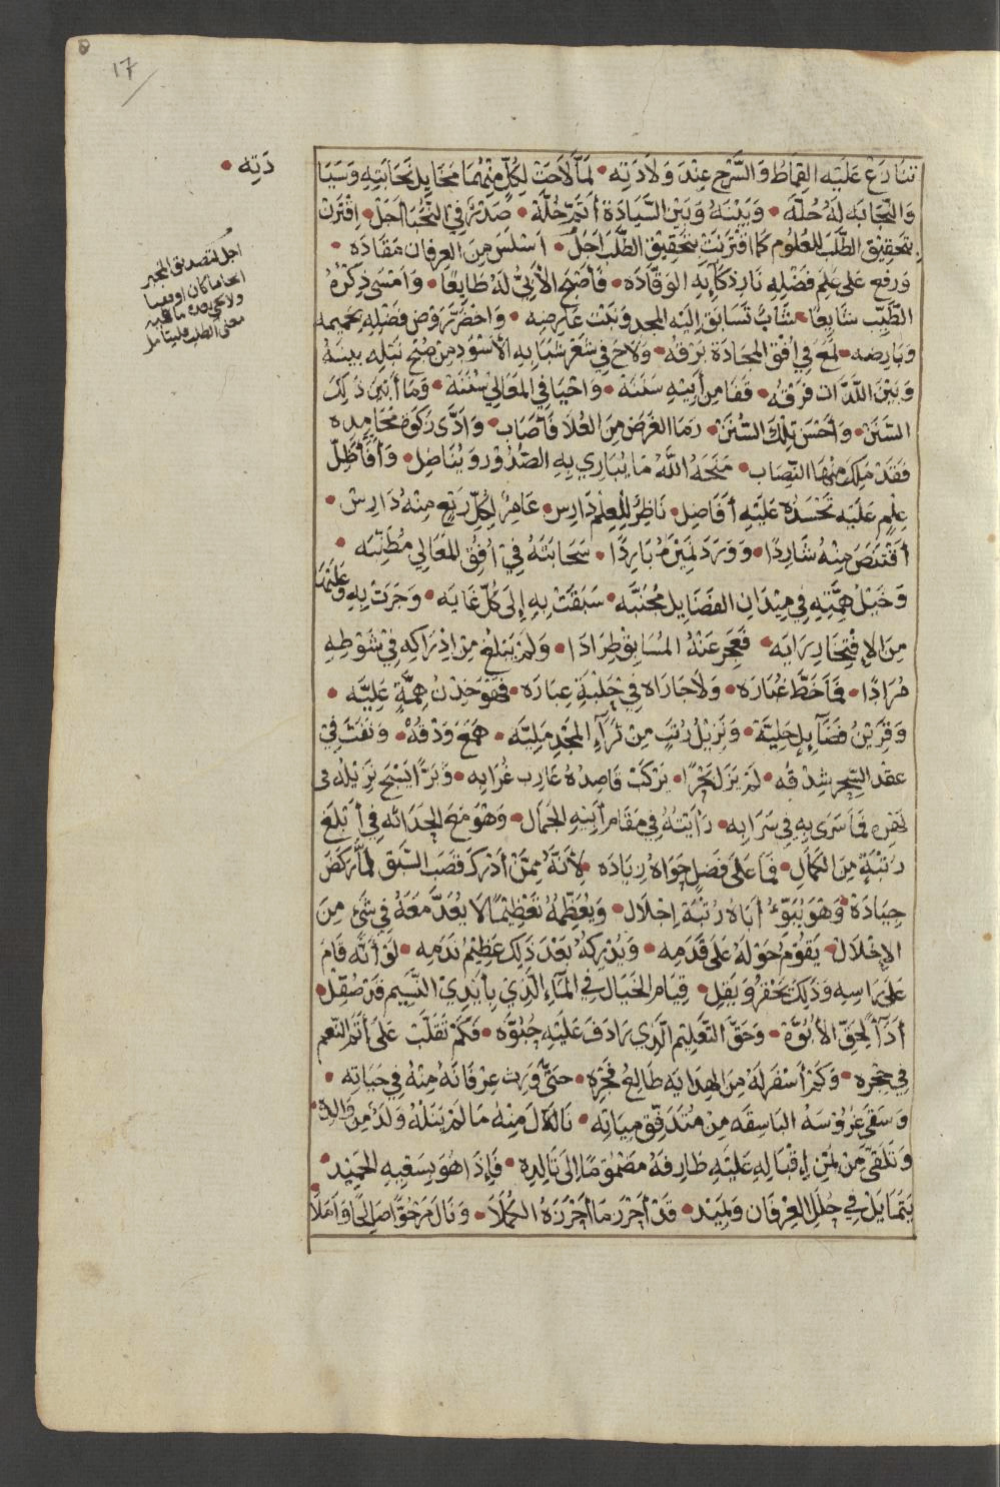 ١٧
تنازع عَلَيْه القِمَاطُ وَالسَّرْج عِنْدَ وَلَادَتِه • لَمَّا لَاحَتْ لِكُلٍّ مِنْهُمَا مَخَايِل نَجَابَتِهِ وَسِيَا
دَتِه •
وَالنَّجَابَه لَهُ حُلَّه • وَبَيْنَهُ وَبَيْن السِّيَادَة أَتَمّ خُلَّة • صَدْرٌ فِي النُّجَبَا أَجَل • اقْتَرَنَ
بِتَحقِيْقِ الطَّلَب للعُلُوم كَمَا اقْتَرَنَتْ بِتَحْقِيْقِ الطَّلَب أجَلْ • اسْلَسَ مِنَ العِرفَان مَقَادَه •
وَرفَع عَلَى عَلَم فَضْلِهِ نَارِ ذَكَآئِهِ الوَقَّادَه • فَأَصْبَحَ الأَبِيُّ لَهُ طَائِعًا • وَامْسَى ذِكْرُهُ
الطَّيِّب شَائِعًا • شَابٌّ تَسَابَق إِلَيْهِ المجد وَبَنَت عَارِضِه • وَاخْضَرَّ رَوْض فَضْلِهِ بِحَمِيمِه
وَبَارِضِه • لَمَعَ فِي أُفُقِ المَجَادَة بَرْقُه • وَلَاحَ فِي شَعْرِ شَبَابِهِ الأَسْوَدِ مِنْ صُبْحِ نُبْلِهِ بَيْنَهُ
وَبَيْنَ اللَّذَّات فَرْقُه • قَفَا مِن أَبِيْهِ سَنَنَه • وَاحْيَا فِي المَعَالِي سُنَنَهْ • وَمَا أَبْيَن ذَلِكَ
السَّنَنْ • وَأَحْسَن تِلْكَ السُّنَنْ • رَمَا الغَرَض مِنَ العُلَا فَأَصَاب • وَادَّى زَكَوةَ مَحَامِدِه
فَقَدْ مَلَكَ مِنْهَا النِّصَاب • مَنَحَهُ اللَّهُ مَا يُبَارِي بِهِ الصُّدُوْر وَيُنَاضِل • وَأَفَاءَ ظِلّ
عِلْمٍ عَلَيْهِ تَحْسُدُهُ عَلَيْهِ أَفَاضِل • نَاظِرٌ لِلْعِلْمِ دَارِس • عَامِرٌ لِكُلّ رَبْعٍ مِنْهُ دَارِسْ •
أَقْتَنَصَ مِنْهُ شَارِدًا • وَوَرَدَ نَمِيْرَهُ بَارِدًا • سَحَابَتُهُ فِي أُفُقِ المَعَالِي مُطْنِبَه •
وَخَيْلُ هِمَّتِهِ فِي مِيْدَانِ الفَضَايل مُجْنَبَه • سَبَقَتْ بِهِ إِلَى كُلّ غَايَه • وَجَرَتْ بِهِ وَعَلَيْهَا
مِنَ الإفْتِخَارِ رَايَه • فَعَجَز عَنْهُ المُسَابِقُ طِرَادَا • وَلَمْ يَبْلُغْ مِنْ اِدْرَاكِهِ فِيْ شَوْطِهِ
مُرَادًا • فَمَا خَطَّ غُبَارَه • وَلَا جَارَاهُ فِي حَلْبَةِ عِبَارَه • فَهْوَ خِدْن هِمَّةٍ عَلِيَّه •
وَقَرِيْنُ فَضَآئِل جَلِيَّة • وَنَزِيْلُ رُتَبٍ مِنْ ثَرَآءِ المَجْدِ مَلِيَّه • هَمَعَ وَدْقُهْ • وَنَفَثَ فِيْ
عقْد السِّحرِ شِدْقُه • لَمْ يَزَل بَحْرًا • يَرْكَبْ قَاصِدُهُ غَارِب غُرَابِه • وَبَرًّا يَسْبَح نَزِيْلُه فِي
رَأَيْتُهُ فِي مَقَام أَبِيْهِ الجَمَال • وَهْوَ مَعَ الحَدَاثه فِي أَبْلَغ
رُتْبَةٍ مِنَ الكَمَالِ • فَمَا عَلَى فَضْلٍ حَوَاهُ زِيَادَه • لِأَنَّهُ مِمَّنْ أَدْرَكَ قَصَبَ السَّبق لَمَّا رَكَضَ
جِيَادَهْ • وَهْوَ يُبَوِّءُ أَبَاهُ رُتْبَةَ إِجْلَال • وَيُعَظِّمُهُ تَعْظِيْمًا لَا يُعَدُّ مَعَهُ فِي شَيْءٍ مِنَ
الاخْلَال • يَقُوْمُ حَوْلَهُ عَلَى قَدَمِه • وَيُدْرِكُهُ بَعْدَ ذَلِكَ عَظِيْم نَدَمِه • لَوْ أَنَّه قَامَ
عَلَى رَاسِهِ وَذَلِكَ يَحْقُرُ وَيَقِل • قِيَام الخَيَال فِي المَآءِ الَّذِي بِأَيْدِيْ النَّسِيْم قَدْ صُقِلْ •
أَدَآءً لِحَقّ الأُبُوَّة • وَحَقَّ التَّعْلِيْم الَّذِي رَادَفَ عَلَيْهِ حُنُوَّه • فَكَمْ تَقَلَّبَ عَلَى أَتَمّ النِّعَم
فِي حِجْرِه • وَكَمْ أَسْفَرَ لَهُ مِنَ الهِدَايَه طَالِعُ فَجْرِه • حَتَّى وَرِثَ عِرْفَانَهُ مِنْهُ فِي حَيَاتِه •
وَسَقَى غُرُوْسَهُ البَاسِقَه مِنْ مُتَدَفِّقِ مِيَاتِه • نَالَ مِنْهُ مَا لَمْ يَنَلْهُ وَلَدٌ مِن وَالِدِه •
وَتَلَقَّى مِنْ يُمْنِ إِقْبَالِهِ عَلَيْهِ طَارِفَهُ مَضْمُوْمًا إِلَى تَالِدِه • فَإِذَا هُوَ بِسَعْيِهِ الحَمِيْد •
يَتَمَايَلْ فِي حُلَلِ العِرْفَان وَيَمِيْد • قَدْ أَحْرَزَ مَا أَحْرَزَهُ الكُمَلَا • وَنَالَ
اجل لتصديق الخبر
معنى الطلب فليتامل